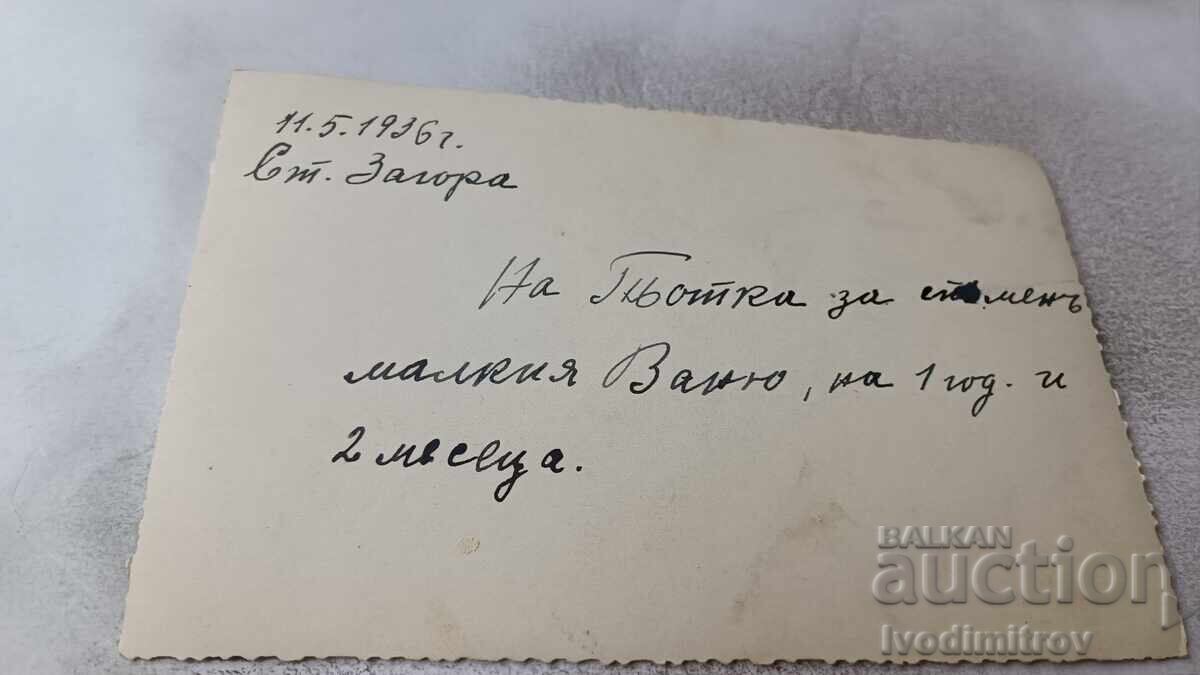 11.5.1936 г.
Ст. Загора
На Пѣотка за споменъ
малкия Ваню, на 1 год. и
2 месеца.
BALKAN
auction
Ivodimitrov